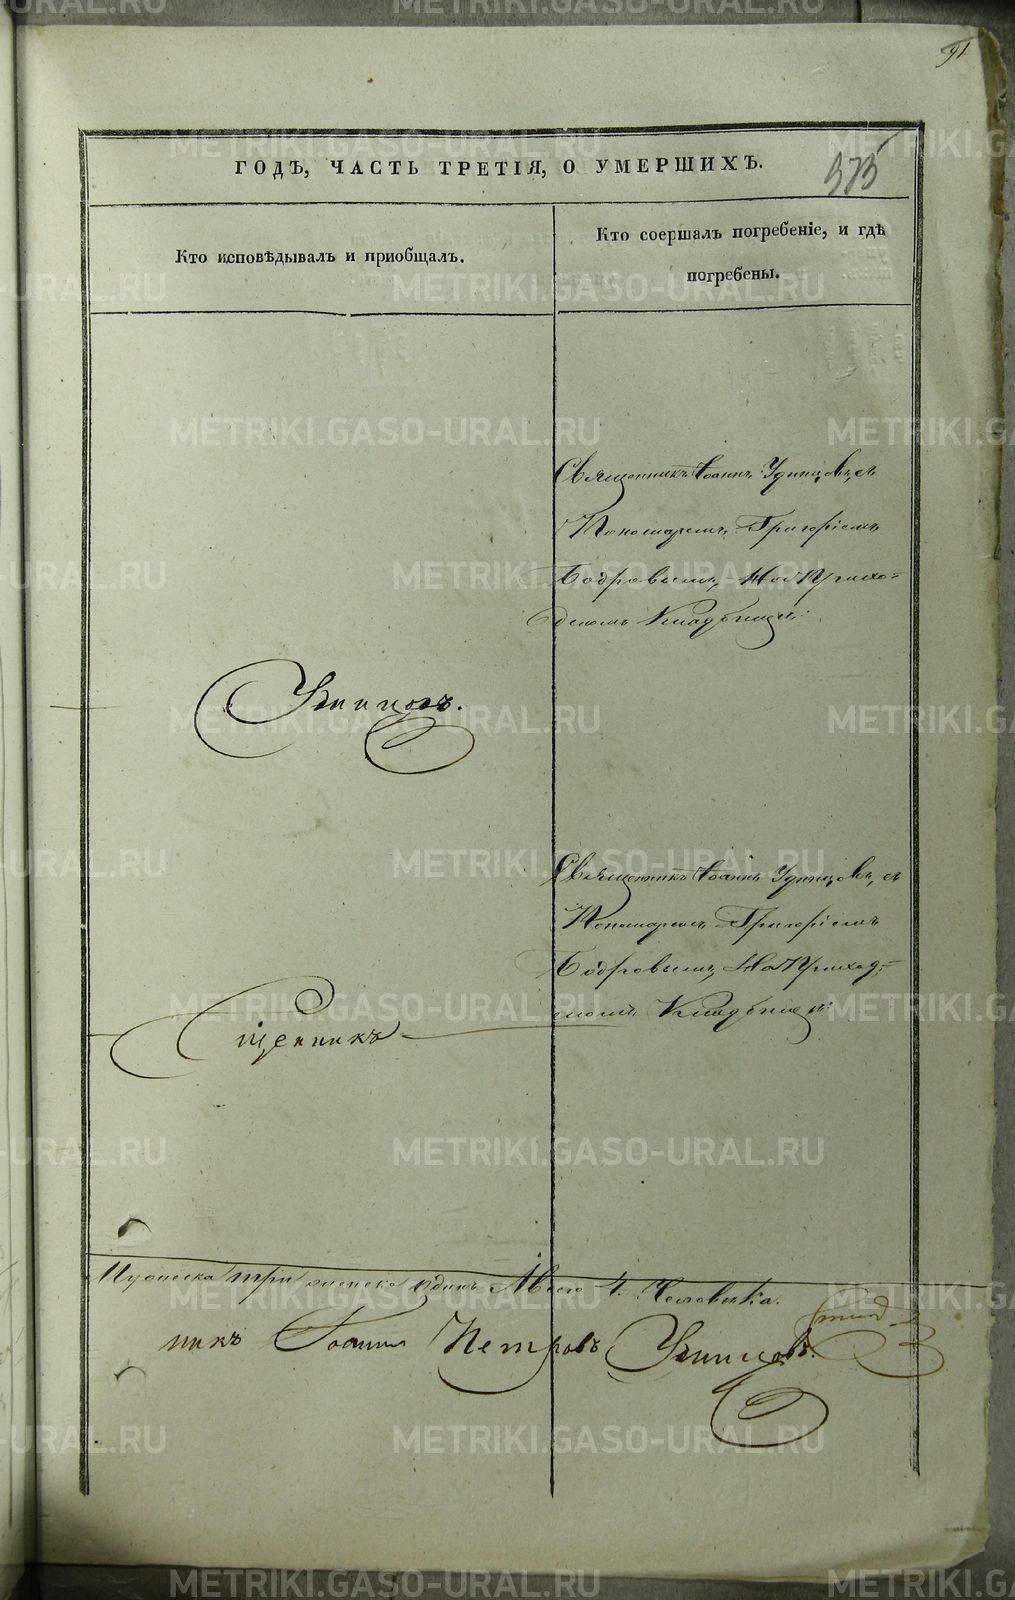 91
ГОДЪ, ЧАСТЬ ТРЕТІЯ, О УМЕРШИХЪ.
375
Кто исповѣдывалъ и приобщалъ.
Кто соершалъ погребеніе, и гдѣ
погребены.
Священникъ Іоаннъ Удинцовъ, съ
Пономаремъ Григоріемъ
Бодровымъ, На Прихо=
дскомъ Кладбищѣ.
Удинцовъ.
Священникъ Іоаннъ Удинцовъ, съ
Пономаремъ Григоріемъ
Бодровымъ, На Приход=
скомъ Кладбищѣ
щенникъ
Мужеска три женска одинъ Всего 4. Человѣка.
никъ Іоаннъ Петровъ Удинцовъ.
METRIKI.GASO-URAL.RU